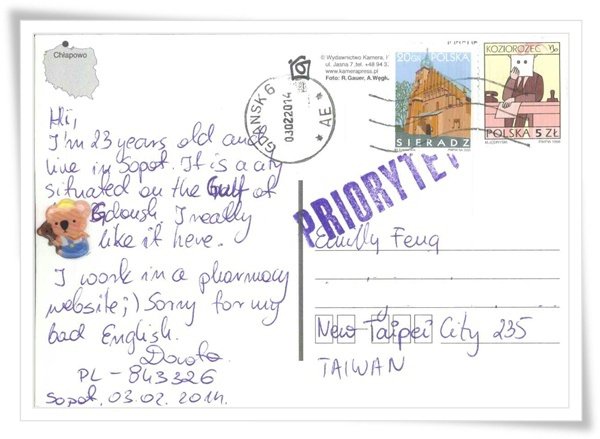 Chłapowo
Hi,
I'm 23 years old and
live in Sopot. It is a city
situated on the Gulf of
Gdańsk. I really
like it here.
I work in a pharmacy
website ;) Sorry for my
bad English.
Dorota
PL - 843326
Sopot. 03.02.2014.
© Wydawnictwo Kamera,
ul. Jasna 7, tel. +48 94 3
www.kamerapress.pl
Foto: R. Gauer, A. Węgł
GDAŃSK 6
03022014
* AE *
20GR POLSKA
SIERADZ
KOZIOROŻEC
POLSKA 5 ZŁ
PRIORYTET
Emilly Feng
New Taipei City 235
TAIWAN